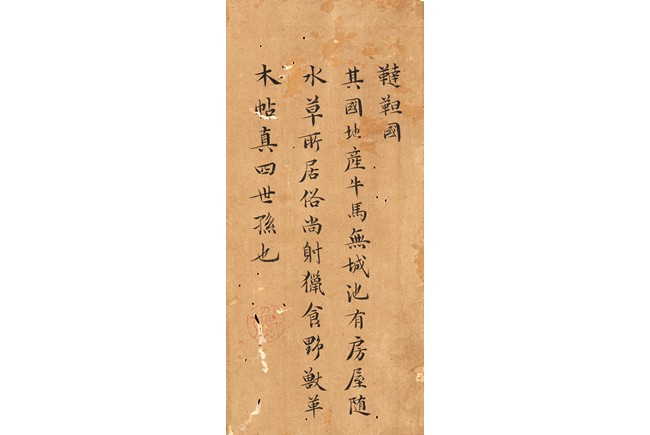 韃靼國
其國地產牛馬無城池有房屋隨
水草所居俗尚射獵食野獸革
木帖真四世孫也